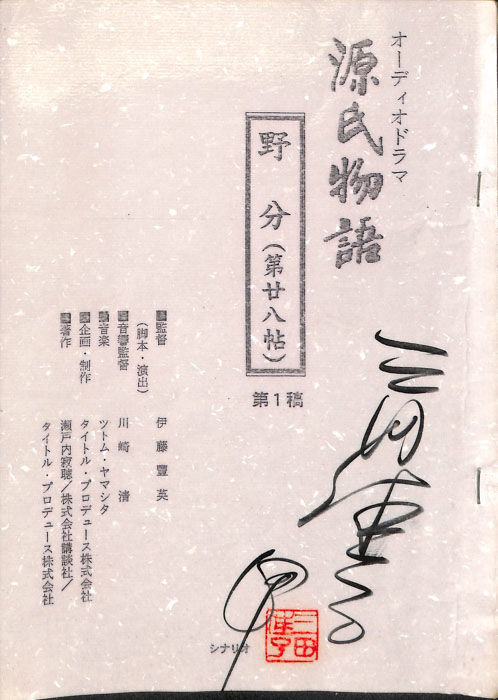 オーディオドラマ
源氏物語
野分(第廿八帖)
第1稿
■監督 伊藤豊英
(脚本・演出)
■音響監督 川崎清
■音楽 ツトム・ヤマシタ
■企画・制作 タイトル・プロデュース株式会社
■著作 瀬戸内寂聴/株式会社講談社/
タイトル・プロデュース株式会社
シナリオ